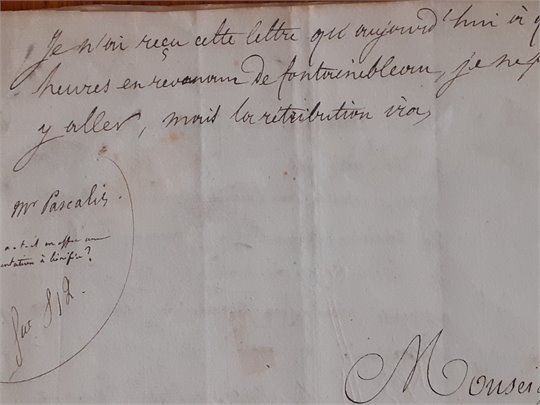 Je n'ai reçu cette lettre qu'aujourd'hui à
heures en revenant de fontainebleau, je ne
y aller, mais la rétribution ira,
Mr Pascalis
a-t-il en effet une
à vérifier?
512.
Monseig